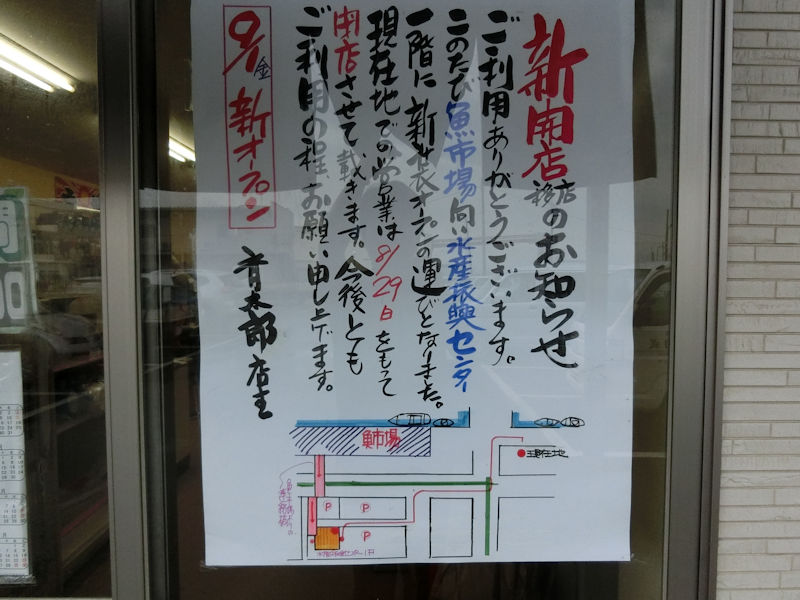 新開店移店のお知らせ
ご利用ありがとうございます。
このたび魚市場向い水産振興センター
一階に新装オープンの運びとなりました。
現在地での営業は8/29日をもって
閉店させて戴きます。今後とも
ご利用の程、お願い申し上げます。
9/1金新オープン
青太郎店主
魚市場
現在地
P
P
P